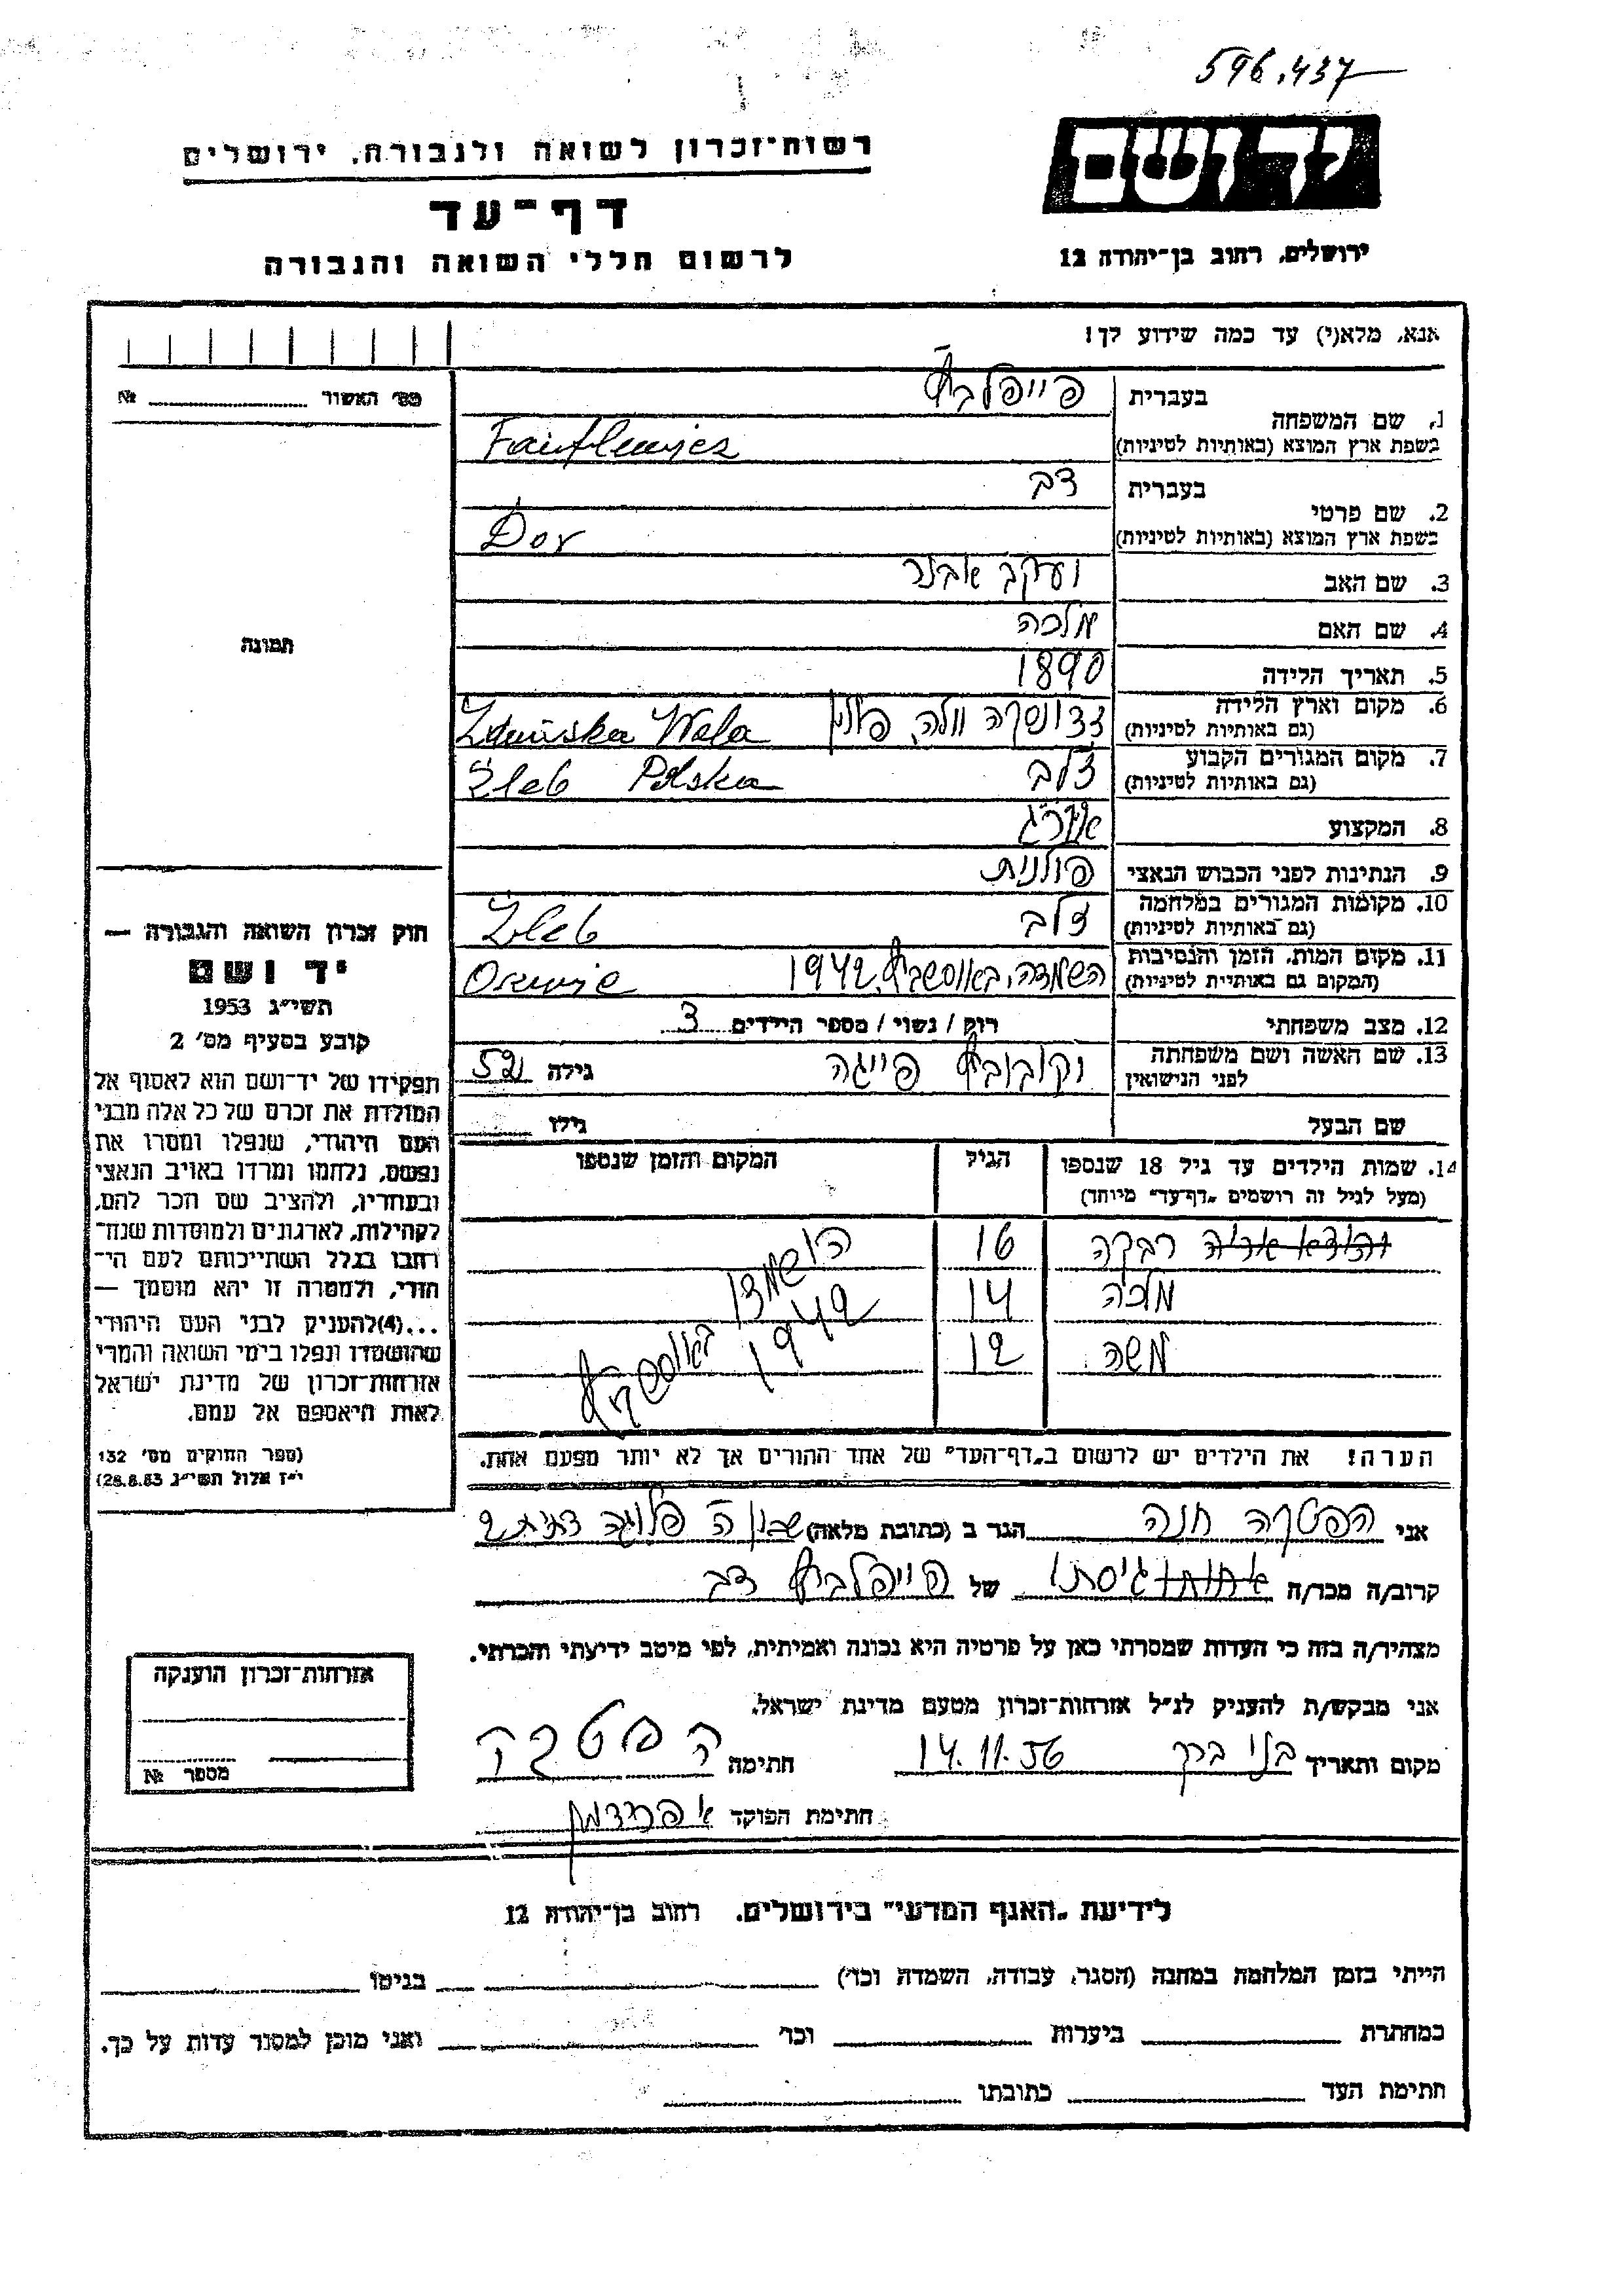 596.437
יד ושם
רשות־זכרון לשואה ולגבורה, ירושלים
דף־עד
לרשום חללי השואה והגבורה
ירושלים, רחוב בן־יהודה 12
אנא, מלא(י) עד כמה שידוע לך!
מס׳ האשור № 
תמונה
1. שם המשפחה
בעברית פייפלביץ
בשפת ארץ המוצא (באותיות לטיניות)
2. שם פרטי
בעברית דב
בשפת ארץ המוצא (באותיות לטיניות) Dov
3. שם האב יעקב אבנר
4. שם האם מלכה
5. תאריך הלידה 1890
6. מקום וארץ הלידה
(גם באותיות לטיניות) זדונסקה וולה, פולין Zduńska Wola
7. מקום המגורים הקבוע
(גם באותיות לטיניות) זלב Polska
8. המקצוע אורג
9. הנתינות לפני הכבוש הנאצי פולנית
10. מקומות המגורים במלחמה
(גם באותיות לטיניות) זלב
11. מקום המות, הזמן והנסיבות
(המקום גם באותיית לטיניות) השמדה, באוסשביץ, 1942
12. מצב משפחתי רוק / נשוי / מספר הילדים 3
13. שם האשה ושם משפחתה
לפני הנישואין יקובוביץ פייגה גילה 52
שם הבעל גילו
14. שמות הילדים עד גיל 18 שנספו
(מעל לגיל זה רושמים „דף־עד״ מיוחד)
הגיל
המקום והזמן שנספו
רבקה 16
מלכה 14
משה 12
הושמדו
באוסשביץ
1942
הערה! את הילדים יש לרשום ב„דף־העד״ של אחד ההורים אך לא יותר מפעם אחת.
חוק זכרון השואה והגבורה —
יד ושם
תשי״ג 1953
קובע בסעיף מס׳ 2
תפקידו של יד־ושם הוא לאסוף אל
המולדת את זכרם של כל אלה מבני
העם היהודי, שנפלו ומסרו את
נפשם, נלחמו ומרדו באויב הנאצי
ובעוזריו, ולהציב שם וזכר להם,
לקהילות, לארגונים ולמוסדות שנח־
רבו בגלל השתייכותם לעם הי־
הודי, ולמטרה זו יהא מוסמך —
...(4)להעניק לבני העם היהודי
שהושמדו ונפלו בימי השואה והמרי
אזרחות־זכרון של מדינת ישראל
לאות היאספם אל עמם.
(ספר החוקים מס׳ 132
י״ז אלול תשי״ג 28.8.53)
אני הפטקה חנה הגר ב (כתובת מלאה)
קרוב/ה מכר/ה גיסתו של פייפלביץ דב
מצהיר/ה בזה כי העדות שמסרתי כאן על פרטיה היא נכונה ואמיתית, לפי מיטב ידיעתי והכרתי.
אני מבקש/ת להעניק לנ״ל אזרחות־זכרון מטעם מדינת ישראל.
מקום ותאריך בני ברק 14.11.56 חתימה
חתימת הפוקד א פרידמן
אזרחות־זכרון הוענקה
מספר №
לידיעת „האגף המדעי״ בירושלים, רחוב בן־יהודה 12
הייתי בזמן המלחמה במחנה (הסגר, עבודה, השמדה וכו׳) בגיטו
במחתרת ביערות וכו׳ ואני מוכן למסור עדות על כך.
חתימת העד כתובתו